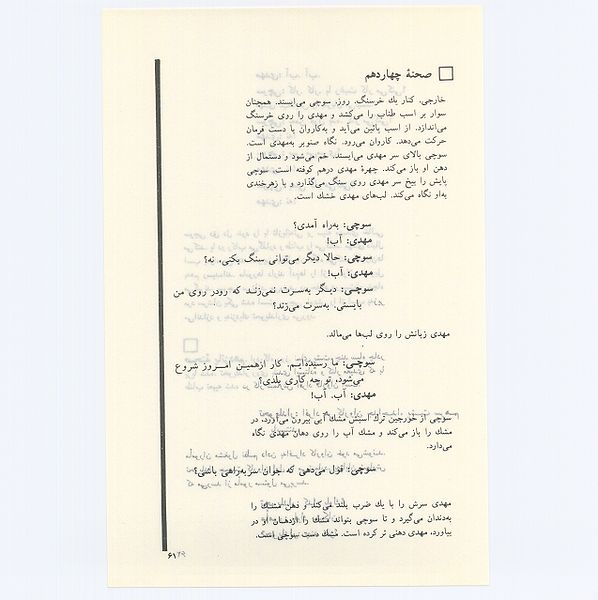 صحنهٔ چهاردهم
خارجی، کنار یك خرسنگ. روز. سوچی می‌ایستد. همچنان
سوار بر اسب طناب را می‌کشد و مهدی را روی خرسنگ
می‌اندازد. از اسب پائین می‌آید و به‌کاروان با دست فرمان
حرکت می‌دهد. کاروان می‌رود. نگاه صنوبر به‌مهدی است.
سوچی بالای سر مهدی می‌ایستد. خم می‌شود و دستمال از
دهن او باز می‌کند. چهرهٔ مهدی درهم کوفته است. سوچی
پایش را بیخ سر مهدی روی سنگ می‌گذارد و با زهرخندی
به‌او نگاه می‌کند. لب‌های مهدی خشك است.
سوچی: به‌راه آمدی؟
مهدی: آب!
سوچی: حالا دیگر می‌توانی سنگ بکنی، نه؟
مهدی: آب!
سوچی: دیگر به‌سرت نمی‌زند که رودر روی من
بایستی. به‌سرت می‌زند؟
مهدی زبانش را روی لب‌ها می‌مالد.
سوچی: ما رسیده‌ایم. کار ازهمین امروز شروع
می‌شود، تو چه کاری بلدی؟
مهدی: آب. آب!
سوچی از خورجین ترك اسبش مشك آبی بیرون می‌آورد، در
مشك را باز می‌کند و مشك آب را روی دهان مهدی نگاه
می‌دارد.
سوچی: قول می‌دهی که جوان سربه‌راهی باشی؟
مهدی سرش را با یك ضرب بلند می‌کند و دهن مشك را
به‌دندان می‌گیرد و تا سوچی بتواند مشك را ازدهان او در
بیاورد، مهدی دهنی تر کرده است. مشك دست سوچی است.
۶۱